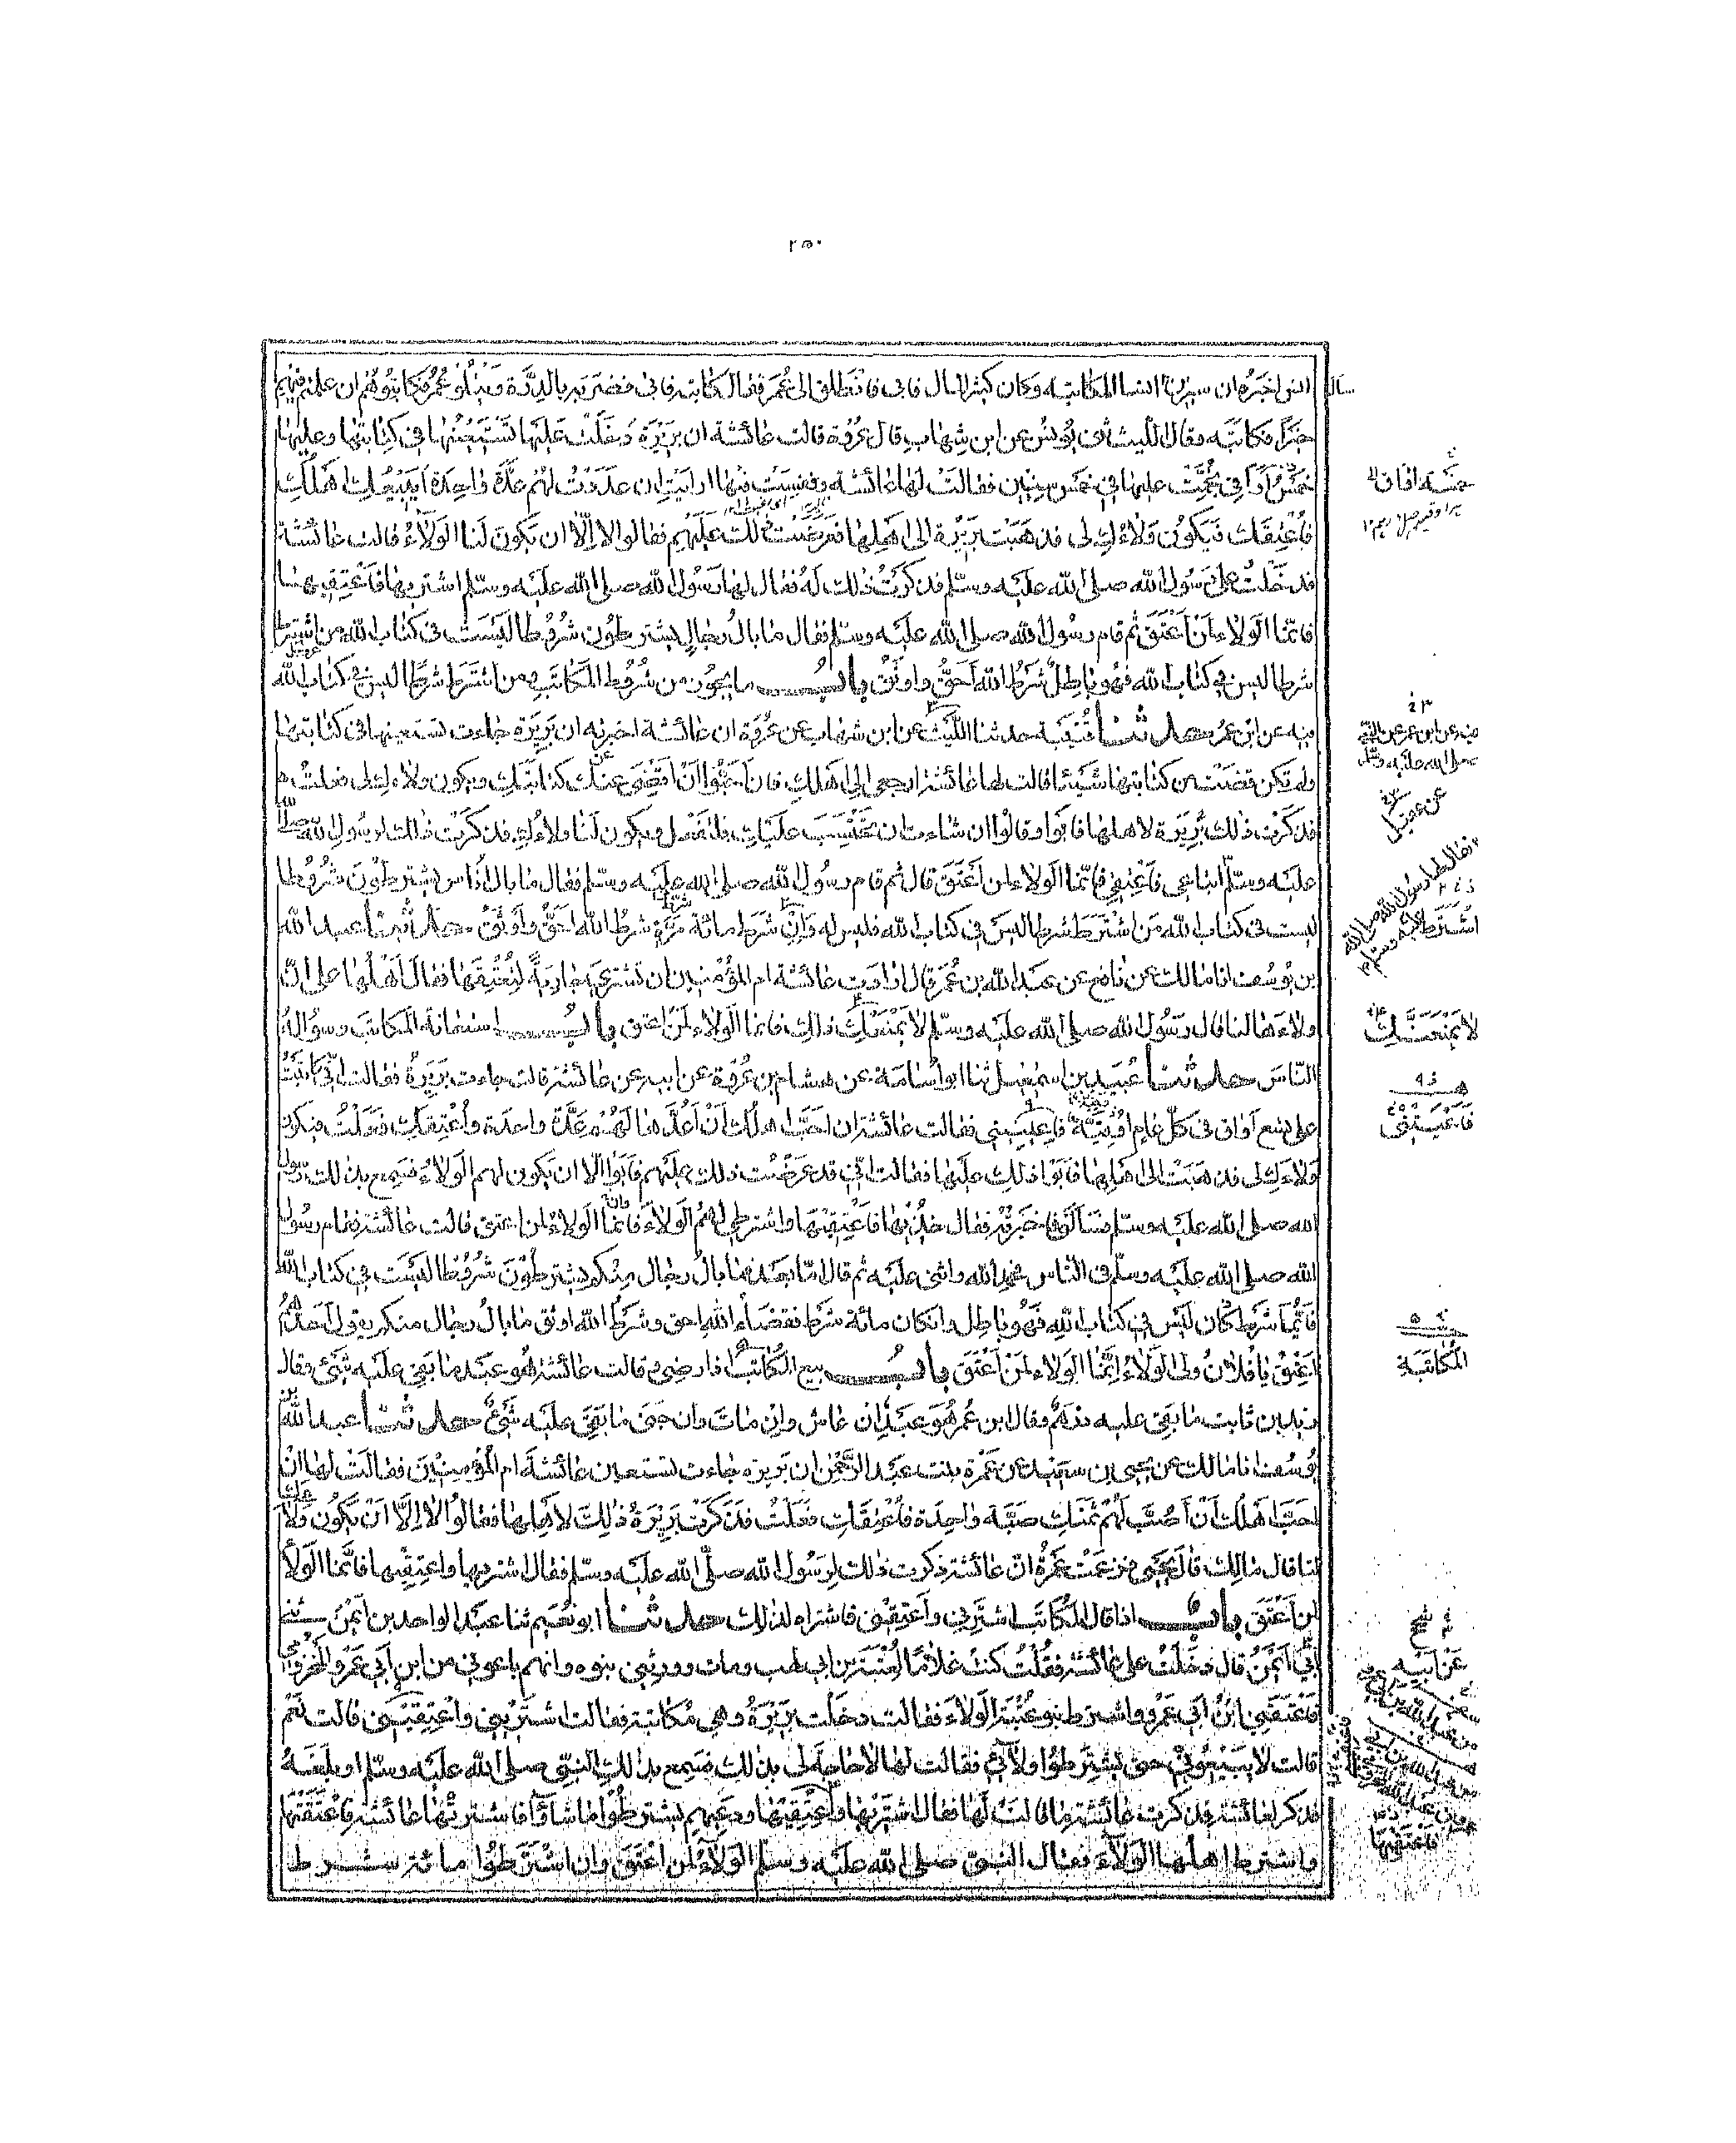 ٢٥٠
انس اخبره ان سيرين سأل انسا المكاتبة وكان كثير المال فابى فانطلق الى عمر فقال كاتبه فابى فضربه بالدرة ويتلو عمر فكاتبوهم ان علمتم فيهم
خيرا فكاتبه وقال الليث ثنى يونس عن ابن شهاب قال عروة قالت عائشة ان بريرة دخلت عليها تستعينها فى كتابتها وعليها
خمس اواقى نجمت عليها فى خمس سنين فقالت لها عائشة ونفست فيها ارايت ان عددت لهم عدة واحدة ايبيعك اهلك
فاعتقك فيكون ولاءك لى فذهبت بريرة الى اهلها فعرضت ذلك عليهم فقالوا لا الا ان يكون لنا الولاء قالت عائشة
فدخلت على رسول الله صلى الله عليه وسلم فذكرت ذلك له فقال لها رسول الله صلى الله عليه وسلم اشتريها فاعتقيها
فانما الولاء لمن اعتق ثم قام رسول الله صلى الله عليه وسلم فقال ما بال رجال يشترطون شروطا ليست فى كتاب الله من اشترط
شرطا ليس فى كتاب الله فهو باطل شرط الله احق واوثق باب ما يجوز من شروط المكاتب ومن اشترط شرطا ليس فى كتاب الله
فيه عن ابن عمر حدثنا قتيبة حدثنا الليث عن ابن شهاب عن عروة ان عائشة اخبرته ان بريرة جاءت تستعينها فى كتابتها
ولم تكن قضت من كتابتها شيئا قالت لها عائشة ارجعى الى اهلك فان احبوا ان اقضى عنك كتابتك ويكون ولاءك لى فعلت
فذكرت ذلك بريرة لاهلها فابوا وقالوا ان شاءت ان تحتسب عليك فلتفعل ويكون لنا ولاءك فذكرت ذلك لرسول الله صلى الله
عليه وسلم ابتاعى فاعتقى فانما الولاء لمن اعتق قال ثم قام رسول الله صلى الله عليه وسلم فقال ما بال اناس يشترطون شروطا
ليست فى كتاب الله من اشترط شرطا ليس فى كتاب الله فليس له وان شرط مائة مرة شرط الله احق واوثق حدثنا عبد الله
بن يوسف انا مالك عن نافع عن عبد الله بن عمر قال ارادت عائشة ام المؤمنين ان تشترى جارية لتعتقها فقال اهلها على ان
ولاءها لنا قال رسول الله صلى الله عليه وسلم لا يمنعك ذلك فانما الولاء لمن اعتق باب استعانة المكاتب وسؤاله
الناس حدثنا عبيد بن اسمعيل ثنا ابو اسامة عن هشام بن عروة عن ابيه عن عائشة قالت جاءت بريرة فقالت انى كاتبت
على تسع اواق فى كل عام اوقية فاعينينى فقالت عائشة ان احب اهلك ان اعدها لهم عدة واحدة واعتقك فعلت فيكون
ولاءك لى فذهبت الى اهلها فابوا ذلك عليها فقالت انى قد عرضت ذلك عليهم فابوا الا ان يكون لهم الولاء فسمع بذلك رسول
الله صلى الله عليه وسلم فسألنى فاخبرته فقال خذيها فاعتقيها واشترطى لهم الولاء فانما الولاء لمن اعتق قالت عائشة فقام رسول
الله صلى الله عليه وسلم فى الناس فحمد الله واثنى عليه ثم قال اما بعد فما بال رجال منكم يشترطون شروطا ليست فى كتاب الله
فايما شرط كان ليس فى كتاب الله فهو باطل وان كان مائة شرط فقضاء الله احق وشرط الله اوثق ما بال رجال منكم يقول احدهم
اعتق يا فلان ولى الولاء انما الولاء لمن اعتق باب بيع المكاتب اذا رضى وقالت عائشة هو عبد ما بقى عليه شىء وقال
زيد بن ثابت ما بقى عليه درهم وقال ابن عمر هو عبد ان عاش وان مات وان جنى ما بقى عليه شىء حدثنا عبد الله بن
يوسف انا مالك عن يحيى بن سعيد عن عمرة بنت عبد الرحمن ان بريرة جاءت تستعين عائشة ام المؤمنين فقالت لها ان
احب اهلك ان اصب لهم ثمنك صبة واحدة فاعتقك فعلت فذكرت بريرة ذلك لاهلها فقالوا لا الا ان يكون ولاؤك
لنا قال مالك قال يحيى فزعمت عمرة ان عائشة ذكرت ذلك لرسول الله صلى الله عليه وسلم فقال اشتريها واعتقيها فانما الولاء
لمن اعتق باب اذا قال المكاتب اشترنى واعتقنى فاشتراه لذلك حدثنا ابو نعيم ثنا عبد الواحد بن ايمن ثنى
ابى ايمن قال دخلت على عائشة فقلت كنت غلاما لعتبة بن ابى لهب ومات وورثنى بنوه وانهم باعونى من ابن ابى عمرو المخزومى
فاعتقنى ابن ابى عمرو واشترط بنو عتبة الولاء فقالت دخلت بريرة وهى مكاتبة فقالت اشترينى واعتقينى قالت نعم
قالت لا يبيعونى حتى يشترطوا ولائى فقالت لها لا حاجة لى بذلك فسمع بذلك النبى صلى الله عليه وسلم او بلغه
فذكر لعائشة فذكرت عائشة ما قالت لها فقال اشتريها واعتقيها ودعيهم يشترطوا ما شاؤا فاشترتها عائشة فاعتقتها
واشترط اهلها الولاء فقال النبى صلى الله عليه وسلم الولاء لمن اعتق وان اشترطوا مائة شرط
خمسة اواق
عن عقيل
اشترط
لا يمنعنك
فاعينينى
المكاتبة
عن ابيه
فاعتقيها